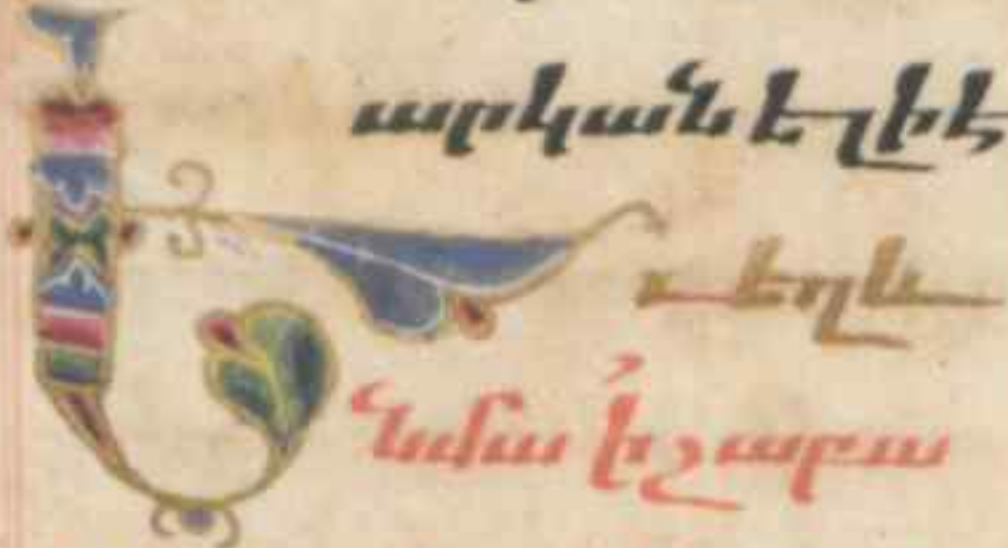 արկանելի է
Եւ եղև
նմա ի շաբա